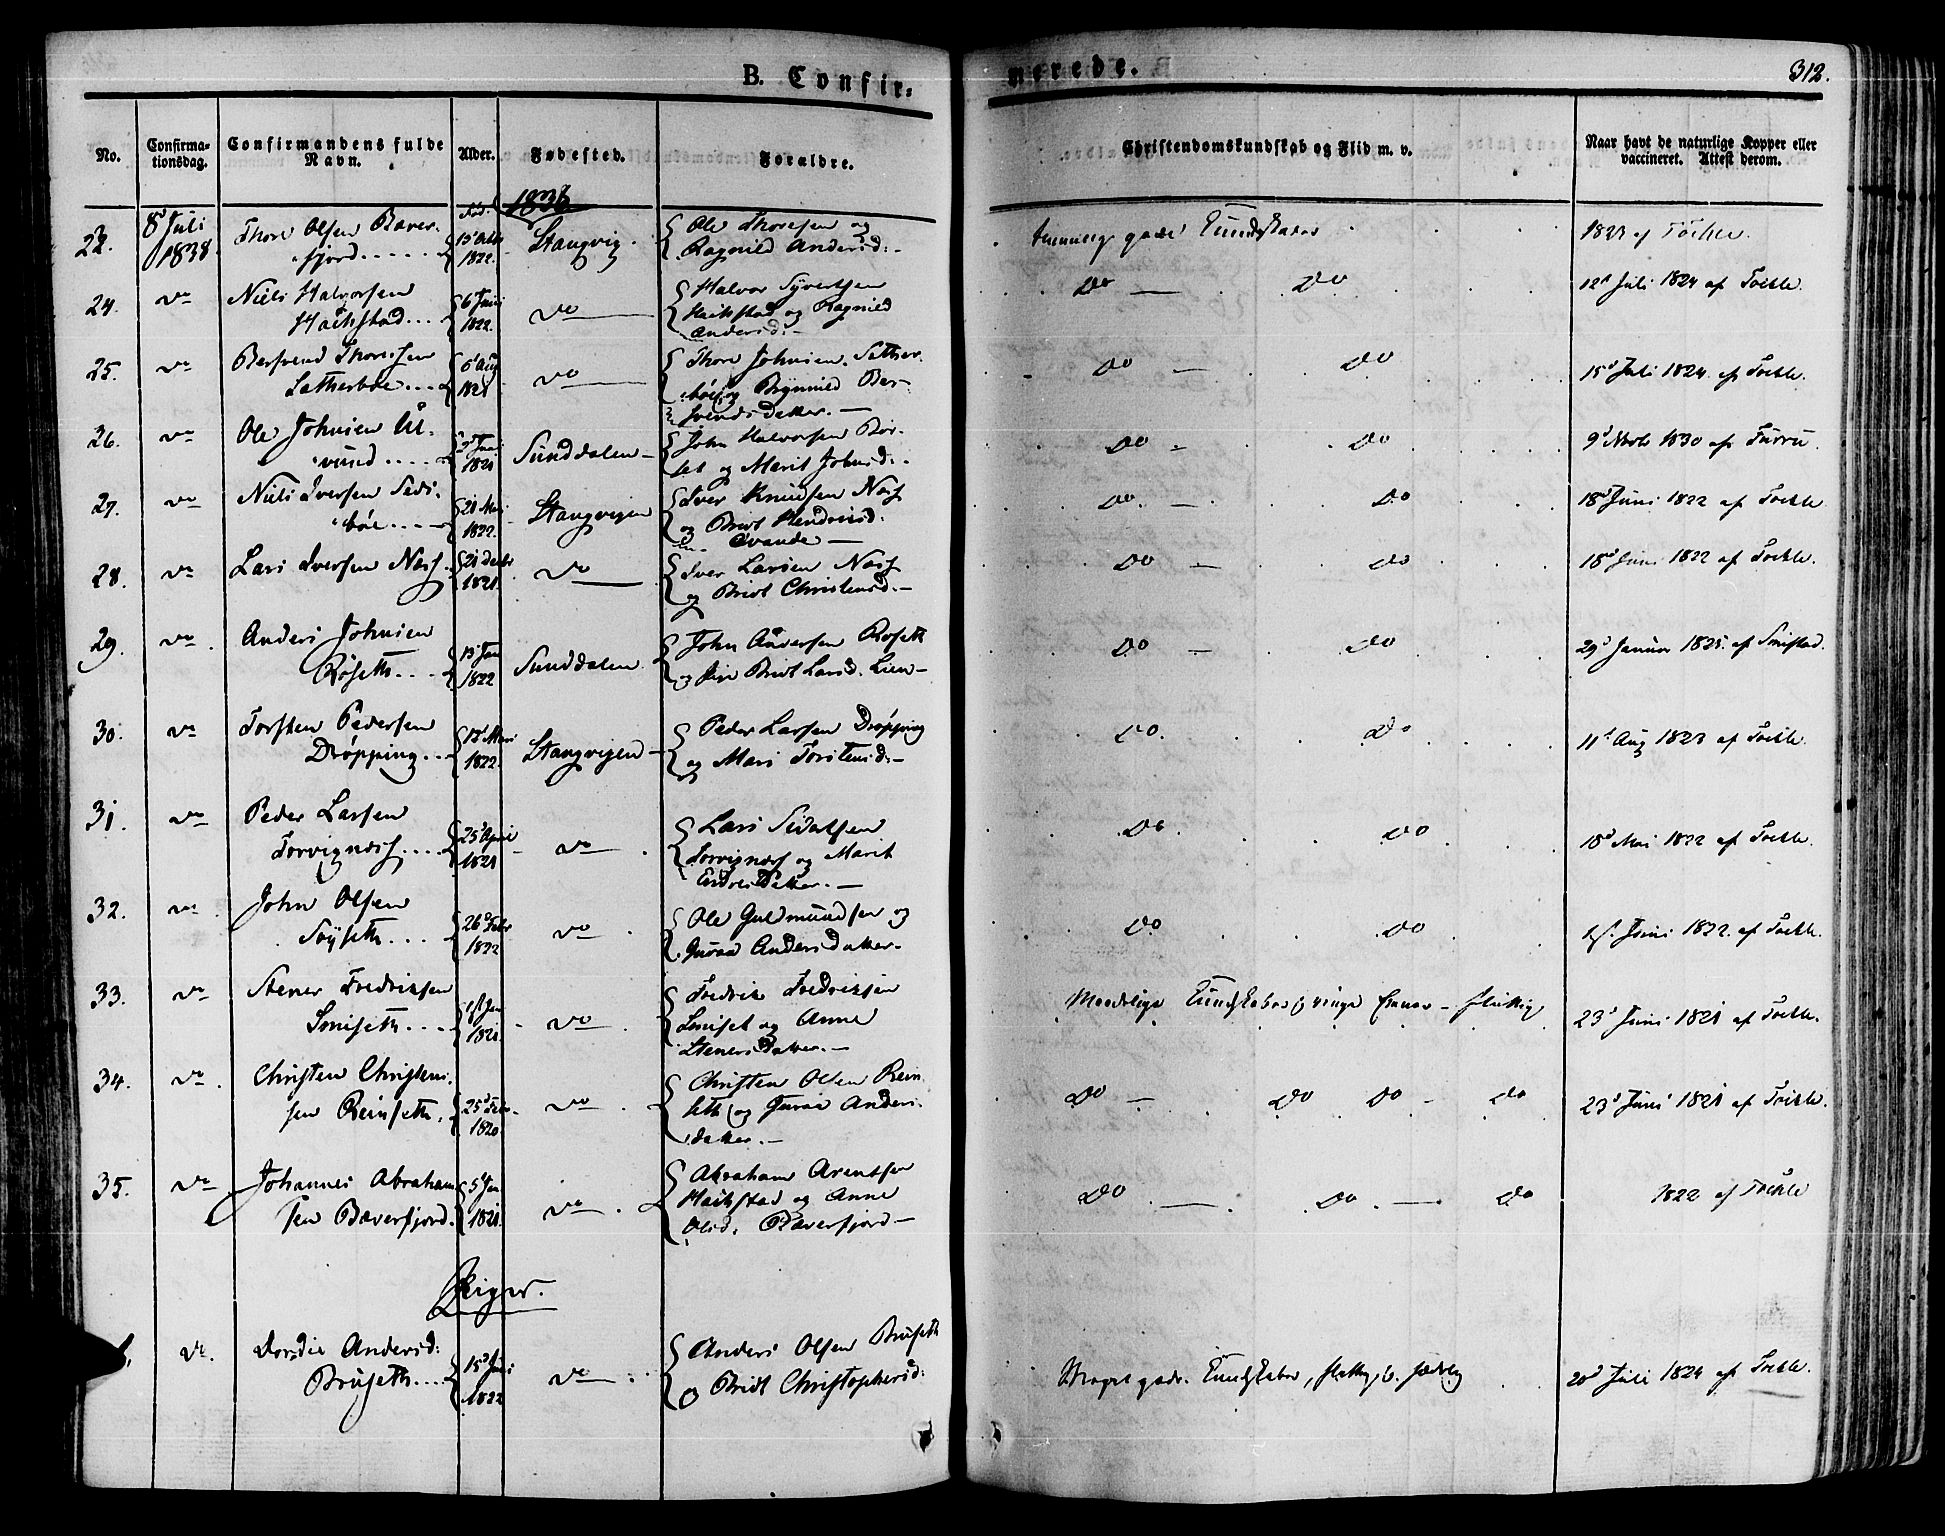 B. Confir-
merede.
312.
No.
Confirma-
tionsdag.
Confirmandens fulde
Navn.
Alder.
Fødested.
Forældre.
Christendomskundskab og Flid m. v.
Naar havt de naturlige Kopper eller
vaccineret. Attest derom.
1838
8d Juli
1838.
Thore Olsen Bæver-
fjord
1822.
Stangvig
Ole Thoresen og
Ragnild Andersd:
gode Kundskaber
1823 af Toikle.
24. do Niels Halvorsen
Haikstad
6 Juni
1822.
do
Halvor Syvertsen
Haikstad og Ragnild
Andersd:
Do Do
12d Juli 1824 af Toikle.
25. do Bersvend Thoresen
Sætherbøe
6d Aug
do
Thore Johnsen Sæther-
bøe og Brynnild Ber-
svends Datter.
Do Do
15d Juli 1824 af Toikle.
26. do Ole Johnsen
vund
1821
Sunddalen
John Halvorsen
og Marit Johnsd:
Do Do
9d 1830 af Furru.
27. do Niels Iversen
bøe
1822.
Stangvigen
Iver Knudsen Næss
og Brit
Do Do
18d Juni 1822 af Toikle.
28. do Lars Iversen Næss
21 Decbr
1821.
do
Iver Larsen Næss
og Brit Christensd:
Do Do
18d Juni 1822 af Toikle.
29. do Anders Johnsen
Røseth
13 Jan
1822
Sunddalen
John Andersen Røseth
og Brit Larsd. Lien
Do Do
29d Januar 1825 af Smistad.
30. do Torsten Pedersen
Drøpping
1822.
Stangvigen
Peder Larsen Drøpping
og Mari Torstensd:
Do Do
11d Aug 1823 af Toikle.
31. do Peder Larsen
Torvignæss
25d April
1821
do
Lars Sivertsen
Torvignæss og Marit
Endres Datter.
Do Do
18d Mai 1822 af Toikle.
32. do John Olsen
Søyseth
26d Febr
1822
do
Ole Guldmundsen og
Guroe Anders Datter.
Do Do
Juni 1822. af Toikle.
33. do Stener Fredriksen
Smiseth
1st Jan
1821.
do
Fredrik Fredriksen
Smiset og Anne
Steners Datter.
Maadelige Kundskaber, ringe Evner - flittig
23d Juni 1821 af Toikle.
34. do Christen Christen-
sen Reinseth.
25d Febr
1820.
do
Christen Olsen Rein-
seth og Guroe Anders-
datter.
Do Do Do Do
23d Juni 1821 af Toikle.
35. do Johannes Abraham-
sen Bæverfjord.
5d Jan
1821.
do
Abraham Arentsen
Haikstad og Anne
Olsd. Bæverfjord
Do Do Do
1822 af Toikle
Piger.
do Dordie Andersd:
Bruseth
15d Juni
1822
do
Anders Olsen Bruseth
og Brit Christophersd:
Meget gode Kundskaber, flittig, sædelig
20d Juli 1824 af Toikle.